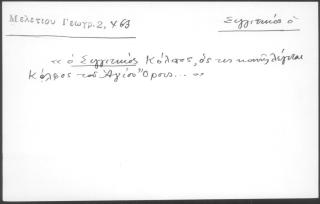 Μελετίου Γεωγρ. 2, 463
Σιγγιτικός ὁ
« ὁ Σιγγιτικὸς Κόλπος, ὃς τις κοινῶς λέγεται
Κόλπος τοῦ Ἁγίου Ὄρους... »